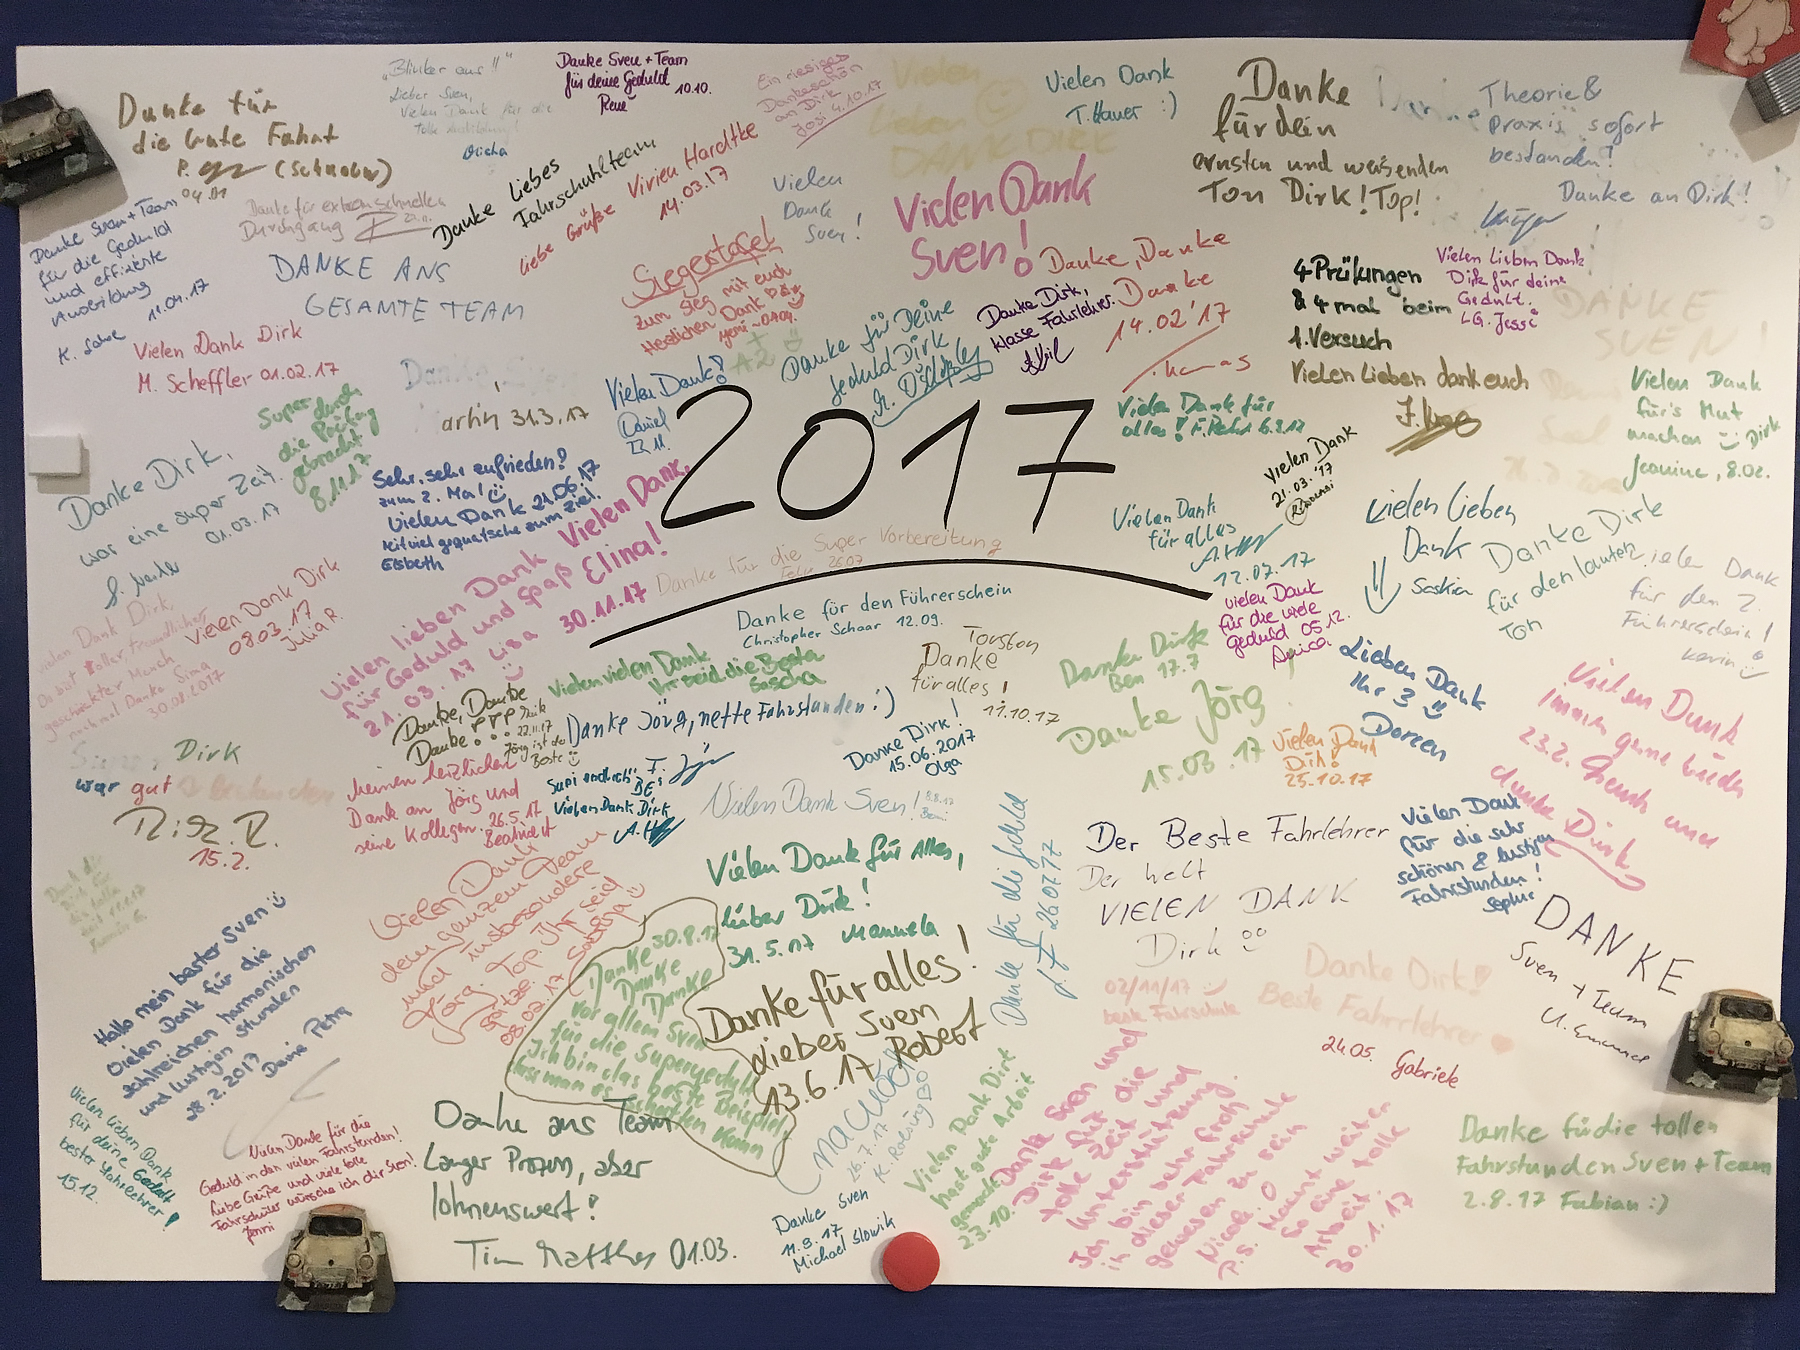 Danke für
die Gute Fahrt
P. (Schnober)
04.01
"Blinker aus!!"
Lieber Sven,
Vielen Dank für die
tolle Ausbildung!
Micha
Danke Sven + Team
für deine Geduld
René 10.10.
Ein riesiges
Dankeschön
an Dirk
Josi 4.10.17
Vielen
lieben
DANK DIRK
Vielen Dank
T. Hauer :)
Danke
für dein
ernsten und weisenden
Ton Dirk! Top!
Danke
Theorie &
Praxis sofort
bestanden!
Danke an Dirk!
Danke Sven + Team
für die Geduld
und effiziente
Ausbildung
11.04.17
Danke für extrem schnellen
Durchgang
DANKE ANS
GESAMTE TEAM
Danke Liebes
Fahrschulteam
Liebe Grüße Vivien Hardtke
14.03.17
Vielen
Dank
Sven!
Siegertafel
zum Sieg mit euch
Herzlichen Dank
Vielen Dank
Sven!
Danke, Danke
Danke
14.02'17
Danke für Deine
Geduld Dirk
Danke Dirk,
klasse Fahrlehrer.
4 Prüfungen
& 4 mal beim
1. Versuch
Vielen Lieben dank euch
Vielen Lieben Dank
Dirk für deine
Geduld.
LG. Jessi
DANKE
SVEN!
Vielen Dank Dirk
M. Scheffler 01.02.17
Super durch
die Prüfung
gebracht
8.11.17
31.3.17
Vielen Dank!
Daniel
2017
Vielen Dank für
alles!
Vielen Dank
21.03.'17
Vielen Dank
für's Mut
machen Dirk
Jeanine, 8.02.
Danke Dirk,
war eine super Zeit.
01.03.17
Sehr, sehr zufrieden!
zum 2. Mal
Vielen Dank 21.06.17
Mit viel gequatsche zum Ziel.
Elsbeth
Vielen Dank
für alles
12.07.17
Vielen Lieben
Dank
Saskia
Danke Dirk
für den lauten
Ton
Vielen Dank
für den 2.
Führerschein!
Kevin
Vielen Dank,
Elina!
30.11.17
Danke für die Super Vorbereitung
Felix 26.07
Vielen lieben Dank
für Geduld und Spaß
21.03.17 Lisa
Vielen Dank Dirk
08.03.17
Julia R.
Vielen Dank Dirk,
Du bist toller freundlicher
geschickter Mensch
nochmal Danke Sina
30.08.2017
Danke für den Führerschein
Christopher Schaar 12.09.
Vielen vielen Dank
Ihr seid die Beste
Sascha
Torsten
Danke
für alles!
11.10.17
Danke Dirk
Ben 17.7
Vielen Dank
für die viele
Geduld 05.12.
Anica
Lieben Dank
Ihr 3
Doreen
Vielen Dank
Immer gerne wieder
23.2.
danke Dirk
Danke, Danke
Danke...
22.11.17
Jörg ist der
Beste
Danke Jörg, nette Fahrstunden :)
Danke Dirk!
15.06.2017
Olga
Danke Jörg
15.03.17
Vielen Dank
Dirk!
25.10.17
Dirk
war gut
15.2.
Meinen herzlichen
Dank an Jörg und
seine Kollegen. 26.5.17
Beatrice H
Supi endlich BE
Vielen Dank Dirk
Vielen Dank Sven!
8.8.17
Vielen Dank für Alles,
lieber Dirk!
31.5.17 Manuela
Danke für die Geduld
26.07.17
Der Beste Fahrlehrer
Der Welt
VIELEN DANK
Dirk
Vielen Dank
für die sehr
schönen & lustigen
Fahrstunden!
Sophie
DANKE
Sven + Team
Vielen Dank
dem ganzen Team
und insbesondere
Jörg. Top. Ihr seid
spitze.
08.02.17 Sabrina
Hallo mein bester Sven
Vielen Dank für die
zahlreichen harmonischen
und lustigen Stunden
28.2.2017 Deine Petra
Danke 30.8.17
Danke
Danke
vor allem Sven
für die Supergeduld
Ich bin das beste Beispiel,
dass man es schaffen kann
Danke für alles!
Lieber Sven
13.6.17 Robert
02/11/17
beste Fahrschule
Danke Dirk!
Beste Fahrlehrer
24.05. Gabriele
Vielen lieben Dank
für deine Geduld
bester Fahrlehrer!
15.12.
Vielen Danke für die
Geduld in den vielen Fahrstunden!
Liebe Grüße und viele tolle
Fahrschüler wünsche ich dir Sven!
Jenni
Danke ans Team
Langer Prozess, aber
lohnenswert!
Tim Matthes 01.03.
26.7.17
Danke Sven
11.8.17
Michael Slowik
Vielen Dank Dirk
hast gute Arbeit
gemacht
23.10.
Danke Sven und
Dirk für die
tolle Zeit und
Unterstützung.
Ich bin sehr froh
in dieser Fahrschule
gewesen zu sein
Nicole. O
P.S. Macht weiter
so eine tolle
Arbeit.
30.1.17
Danke für die tollen
Fahrstunden Sven + Team
2.8.17 Fabian :)